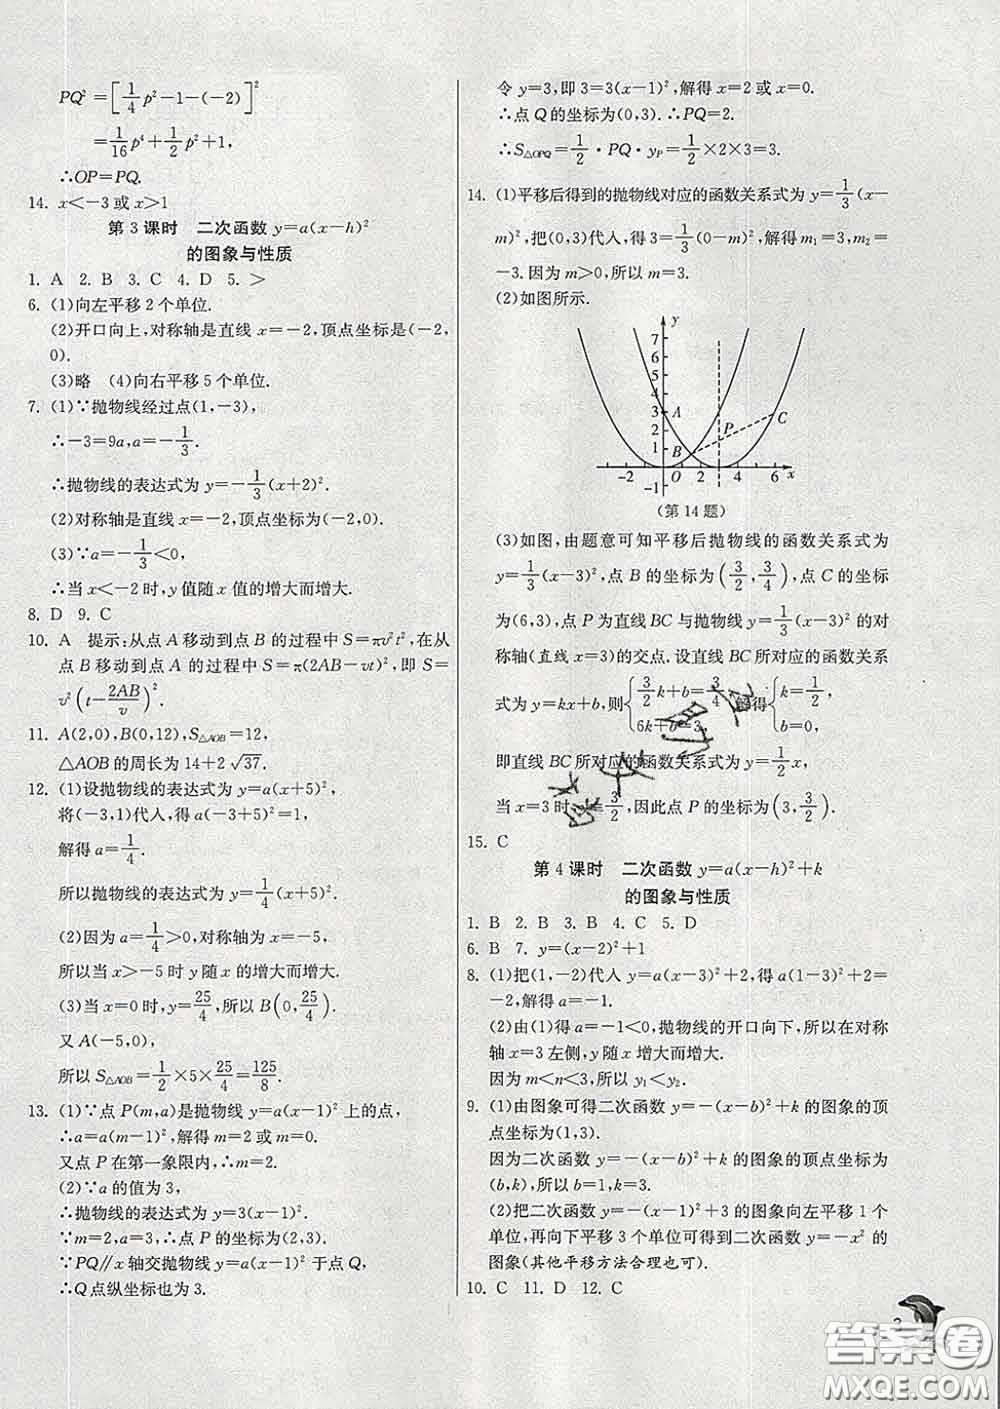 PQ²=[1/4 p²-1-(-2)]²
=1/16 p⁴+1/2 p²+1,
∴OP=PQ.
14. x<-3或x>1
第3课时 二次函数y=a(x-h)²
的图象与性质
1. A 2. B 3. C 4. D 5. >
6. (1)向左平移2个单位.
(2)开口向上,对称轴是直线x=-2,顶点坐标是(-2,
0).
(3)略 (4)向右平移5个单位.
7. (1)∵抛物线经过点(1,-3),
∴-3=9a,a=-1/3.
∴抛物线的表达式为y=-1/3(x+2)².
(2)对称轴是直线x=-2,顶点坐标为(-2,0).
(3)∵a=-1/3<0,
∴当x<-2时,y值随x值的增大而增大.
8. D 9. C
10. A 提示:从点A移动到点B的过程中S=πv²t²,在从
点B移动到点A的过程中S=π(2AB-vt)²,即S=
v²(t-2AB/v)².
11. A(2,0),B(0,12),S△AOB=12,
△AOB的周长为14+2√37.
12. (1)设抛物线的表达式为y=a(x+5)²,
将(-3,1)代人,得a(-3+5)²=1,
解得a=1/4.
所以抛物线的表达式为y=1/4(x+5)².
(2)因为a=1/4>0,对称轴为x=-5,
所以当x>-5时y随x的增大而增大.
(3)当x=0时,y=25/4,所以B(0,25/4).
又A(-5,0),
所以S△AOB=1/2×5×25/4=125/8.
13. (1)∵点P(m,a)是抛物线y=a(x-1)²上的点,
∴a=a(m-1)²,解得m=2或m=0.
又点P在第一象限内,∴m=2.
(2)∵a的值为3,
∴抛物线的表达式为y=3(x-1)².
∵m=2,a=3,∴点P的坐标为(2,3).
∵PQ∥x轴交抛物线于点Q,
∴Q点纵坐标也为3.
令y=3,即3=3(x-1)²,解得x=2或x=0.
∴点Q的坐标为(0,3).∴PQ=2.
∴S△OPQ=1/2·PQ·yP=1/2×2×3=3.
14. (1)平移后得到的抛物线对应的函数关系式为y=1/3(x-
m)²,把(0,3)代人,得3=1/3(0-m)²,解得m₁=3,m₂=
-3.因为m>0,所以m=3.
(2)如图所示.
y
7
6
5
4
3 A
2
1
-1
P
C
B
-2 O 2 4 6 x
(第14题)
(3)如图,由题意可知平移后抛物线的函数关系式为
y=1/3(x-3)²,点B的坐标为(3/2,3/4),点C的坐标
为(6,3),点P为直线BC与抛物线y=1/3(x-3)²的对
称轴(直线x=3)的交点.设直线BC所对应的函数关系
式为y=kx+b,则{3/2k+b=3/4, 6k+b=3, 解得{k=1/2, b=0,
即直线BC所对应的函数关系式为y=1/2x,
当x=3时,y=3/2,因此点P的坐标为(3,3/2).
15. C
第4课时 二次函数y=a(x-h)²+k
的图象与性质
1. B 2. B 3. B 4. C 5. D
6. B 7. y=(x-2)²+1
8. (1)把(1,-2)代人y=a(x-3)²+2,得a(1-3)²+2=
-2,解得a=-1.
(2)由(1)得a=-1<0,抛物线的开口向下,所以在对称
轴x=3左侧,y随x增大而增大.
因为m<n<3,所以y₁<y₂.
9. (1)由图象可得二次函数y=-(x-b)²+k的图象的顶
点坐标为(1,3).
因为二次函数y=-(x-b)²+k的图象的顶点坐标为
(b,k),所以b=1,k=3.
(2)把二次函数y=-(x-1)²+3的图象向左平移1个
单位,再向下平移3个单位可得到二次函数y=-x²的
图象(其他平移方法合理也可).
10. C 11. D 12. C
3
答案圈
MXQE.COM